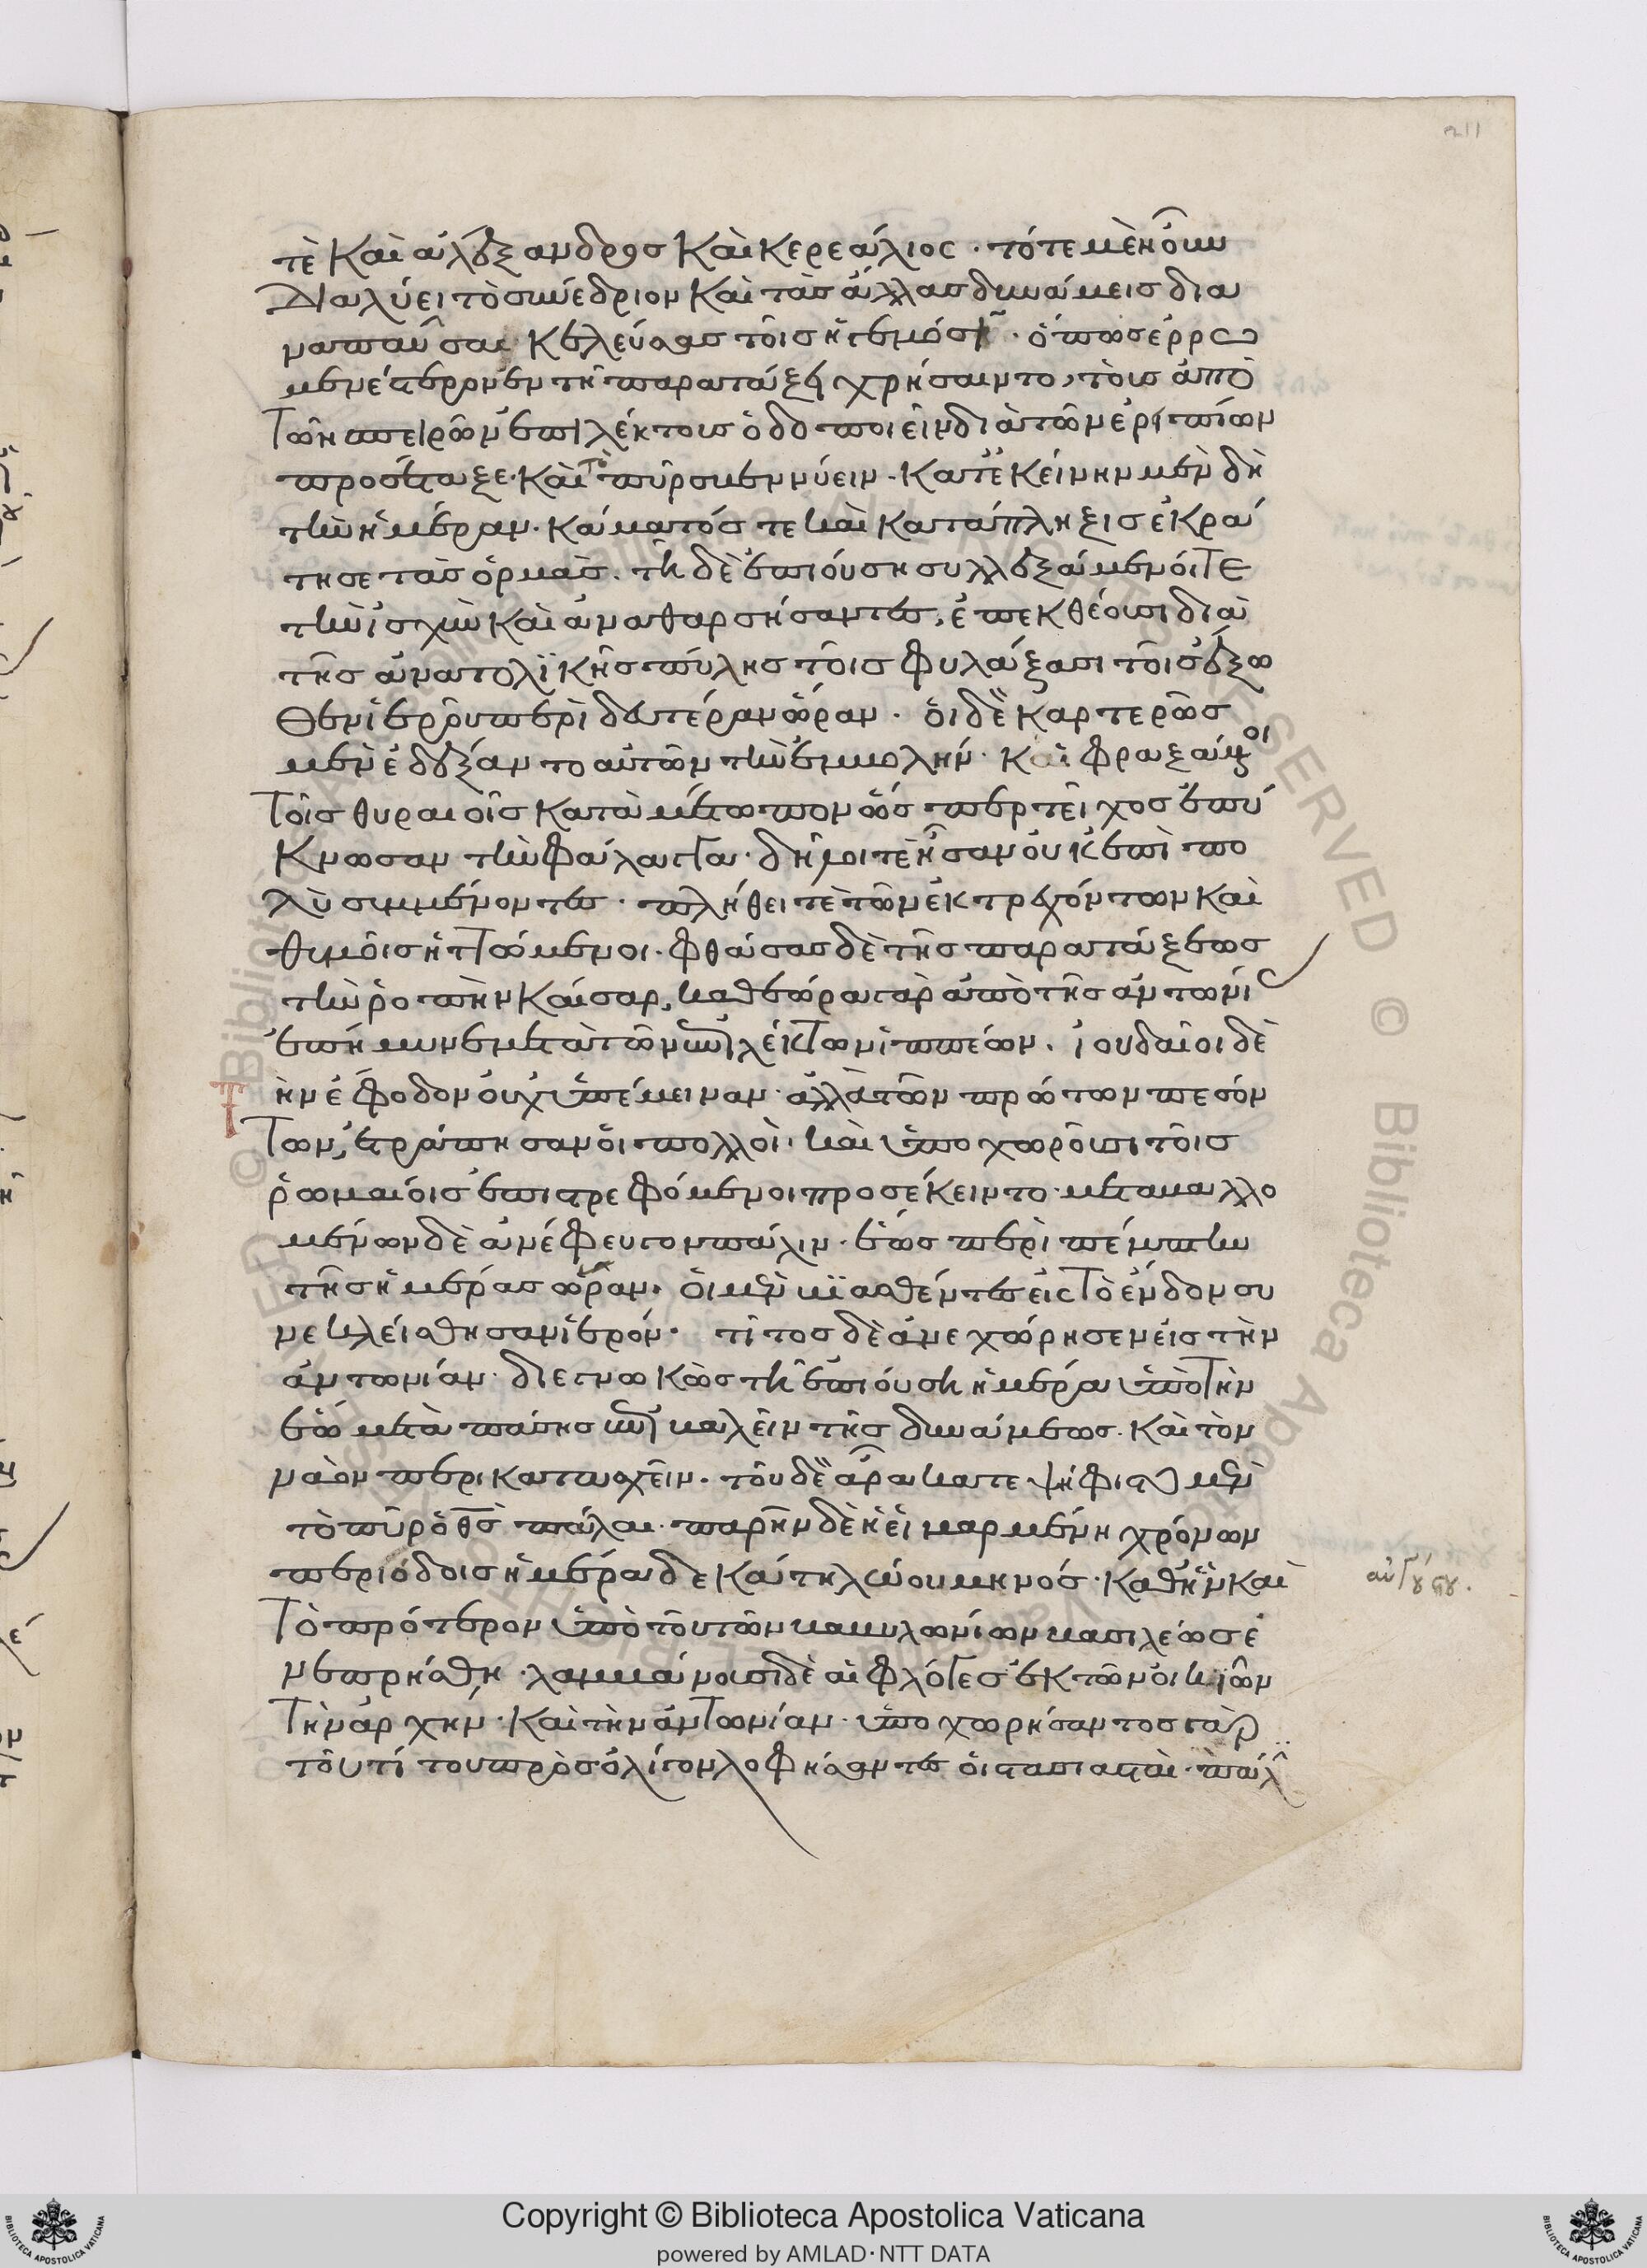 τὲ καὶ ἀλέξανδρος καὶ κερεάλιος · τότε μὲν οὖν
διαλύει τὸ συνέδριον καὶ τὰς ἄλλας δυνάμεις δια
ναπαῦσαι κελεύσας τοῖς ἡγεμόσιν · ὅπως ἐρρω
μενέστερον ἐν τῆ παρατάξει χρήσαιντο, τοῖς ἀπὸ
τῶν σπειρῶν ἐπιλέκτοις ὁδοποιεῖν διὰ τῶν ἐριπίων
προσέταξε · καὶ τὸ πῦρ σβεννύειν · κατ' ἐκείνην μὲν δὴ
τὴν ἡμέραν · κάματός τε καὶ κατάπληξις ἐκρά
τησε τὰς ὁρμὰς · τῆ δὲ ἐπιούση συλλεξάμενοί τε
τὴν ἰσχὺν καὶ ἀναθαρσήσαντες, ἐπεκθέουσι διὰ
τῆς ἀνατολϊκῆς πύλης τοῖς φυλάξασι τοῖς ἔξω
θεν ἱεροῦ περὶ δευτέραν ὥραν · οἱ δὲ καρτερῶς
μὲν ἐδέξαντο αὐτῶν τὴν ἐμβολήν · καὶ φραξάμενοι
τοῖς θυραιοῖς κατὰ μέτωπον ὥσπερ τεῖχος ἐπύ
κνωσαν τὴν φάλαγγα · δῆλοι τὲ ἦσαν οὐκ ἐπὶ πο
λὺ συμμένοντες · πλήθει τὲ τῶν ἐκτρεχόντων καὶ
θυμοῖς ἡττώμενοι · φθάσας δὲ τῆς παρατάξεως
τὴν ῥοπὴν καῖσαρ, καθεώρα γὰρ ἀπὸ τῆς ἀντωνί
ἐπήμυνεν μετὰ τῶν ἐπιλέκτων ἱππέων · ἰουδαῖοι δὲ
τὴν ἔφοδον οὐχ ὑπέμειναν · ἀλλὰ τῶν πρώτων πεσόν
των, ἐτράπησαν οἱ πολλοὶ · καὶ ὑποχωροῦσι τοῖς
ῥωμαίοις ἐπιστρεφόμενοι προσέκειντο · μεταβαλλο
μένων δὲ ἀνέφευγον πάλιν · ἕως περὶ πέμπτην
τῆς ἡμέρας ὥραν · οἱ μὲν βϊασθέντες εἰς τὸ ἔνδον συ
νεκλείσθησαν ἱερόν · τίτος δὲ ἀνεχώρησεν εἰς τὴν
ἀντωνίαν · διεγνωκὼς τῆ ἐπιούση ἡμέρα ὑπὸ τὴν
ἕω μετὰ πάσης ἐμβαλεῖν τῆς δυνάμεως · καὶ τὸν
ναὸν περικατασχεῖν · τοῦ δὲ ἄρα κατεψήφιστο μὲν
τὸ πῦρ ὁ θς πάλαι · παρῆν δὲ ἡ εἱμαρμένη χρόνων
περιόδοις ἡμέρα δεκάτη λώου μηνός · καθ' ἣν καὶ
τὸ πρότερον ὑπὸ τοῦ τῶν βαβυλωνίων βασιλέως ἐ
νεπρήσθη · λαμβάνουσι δὲ αἱ φλόγες ἐκ τῶν οἰκείων
τὴν ἀρχήν · καὶ τὴν ἀντωνίαν · ὑποχωρήσαντος γὰρ
τοῦ τίτου πρὸς ὀλίγον λοφήσαντες οἱ στασιασταὶ · πάλ
αὐγούστου.